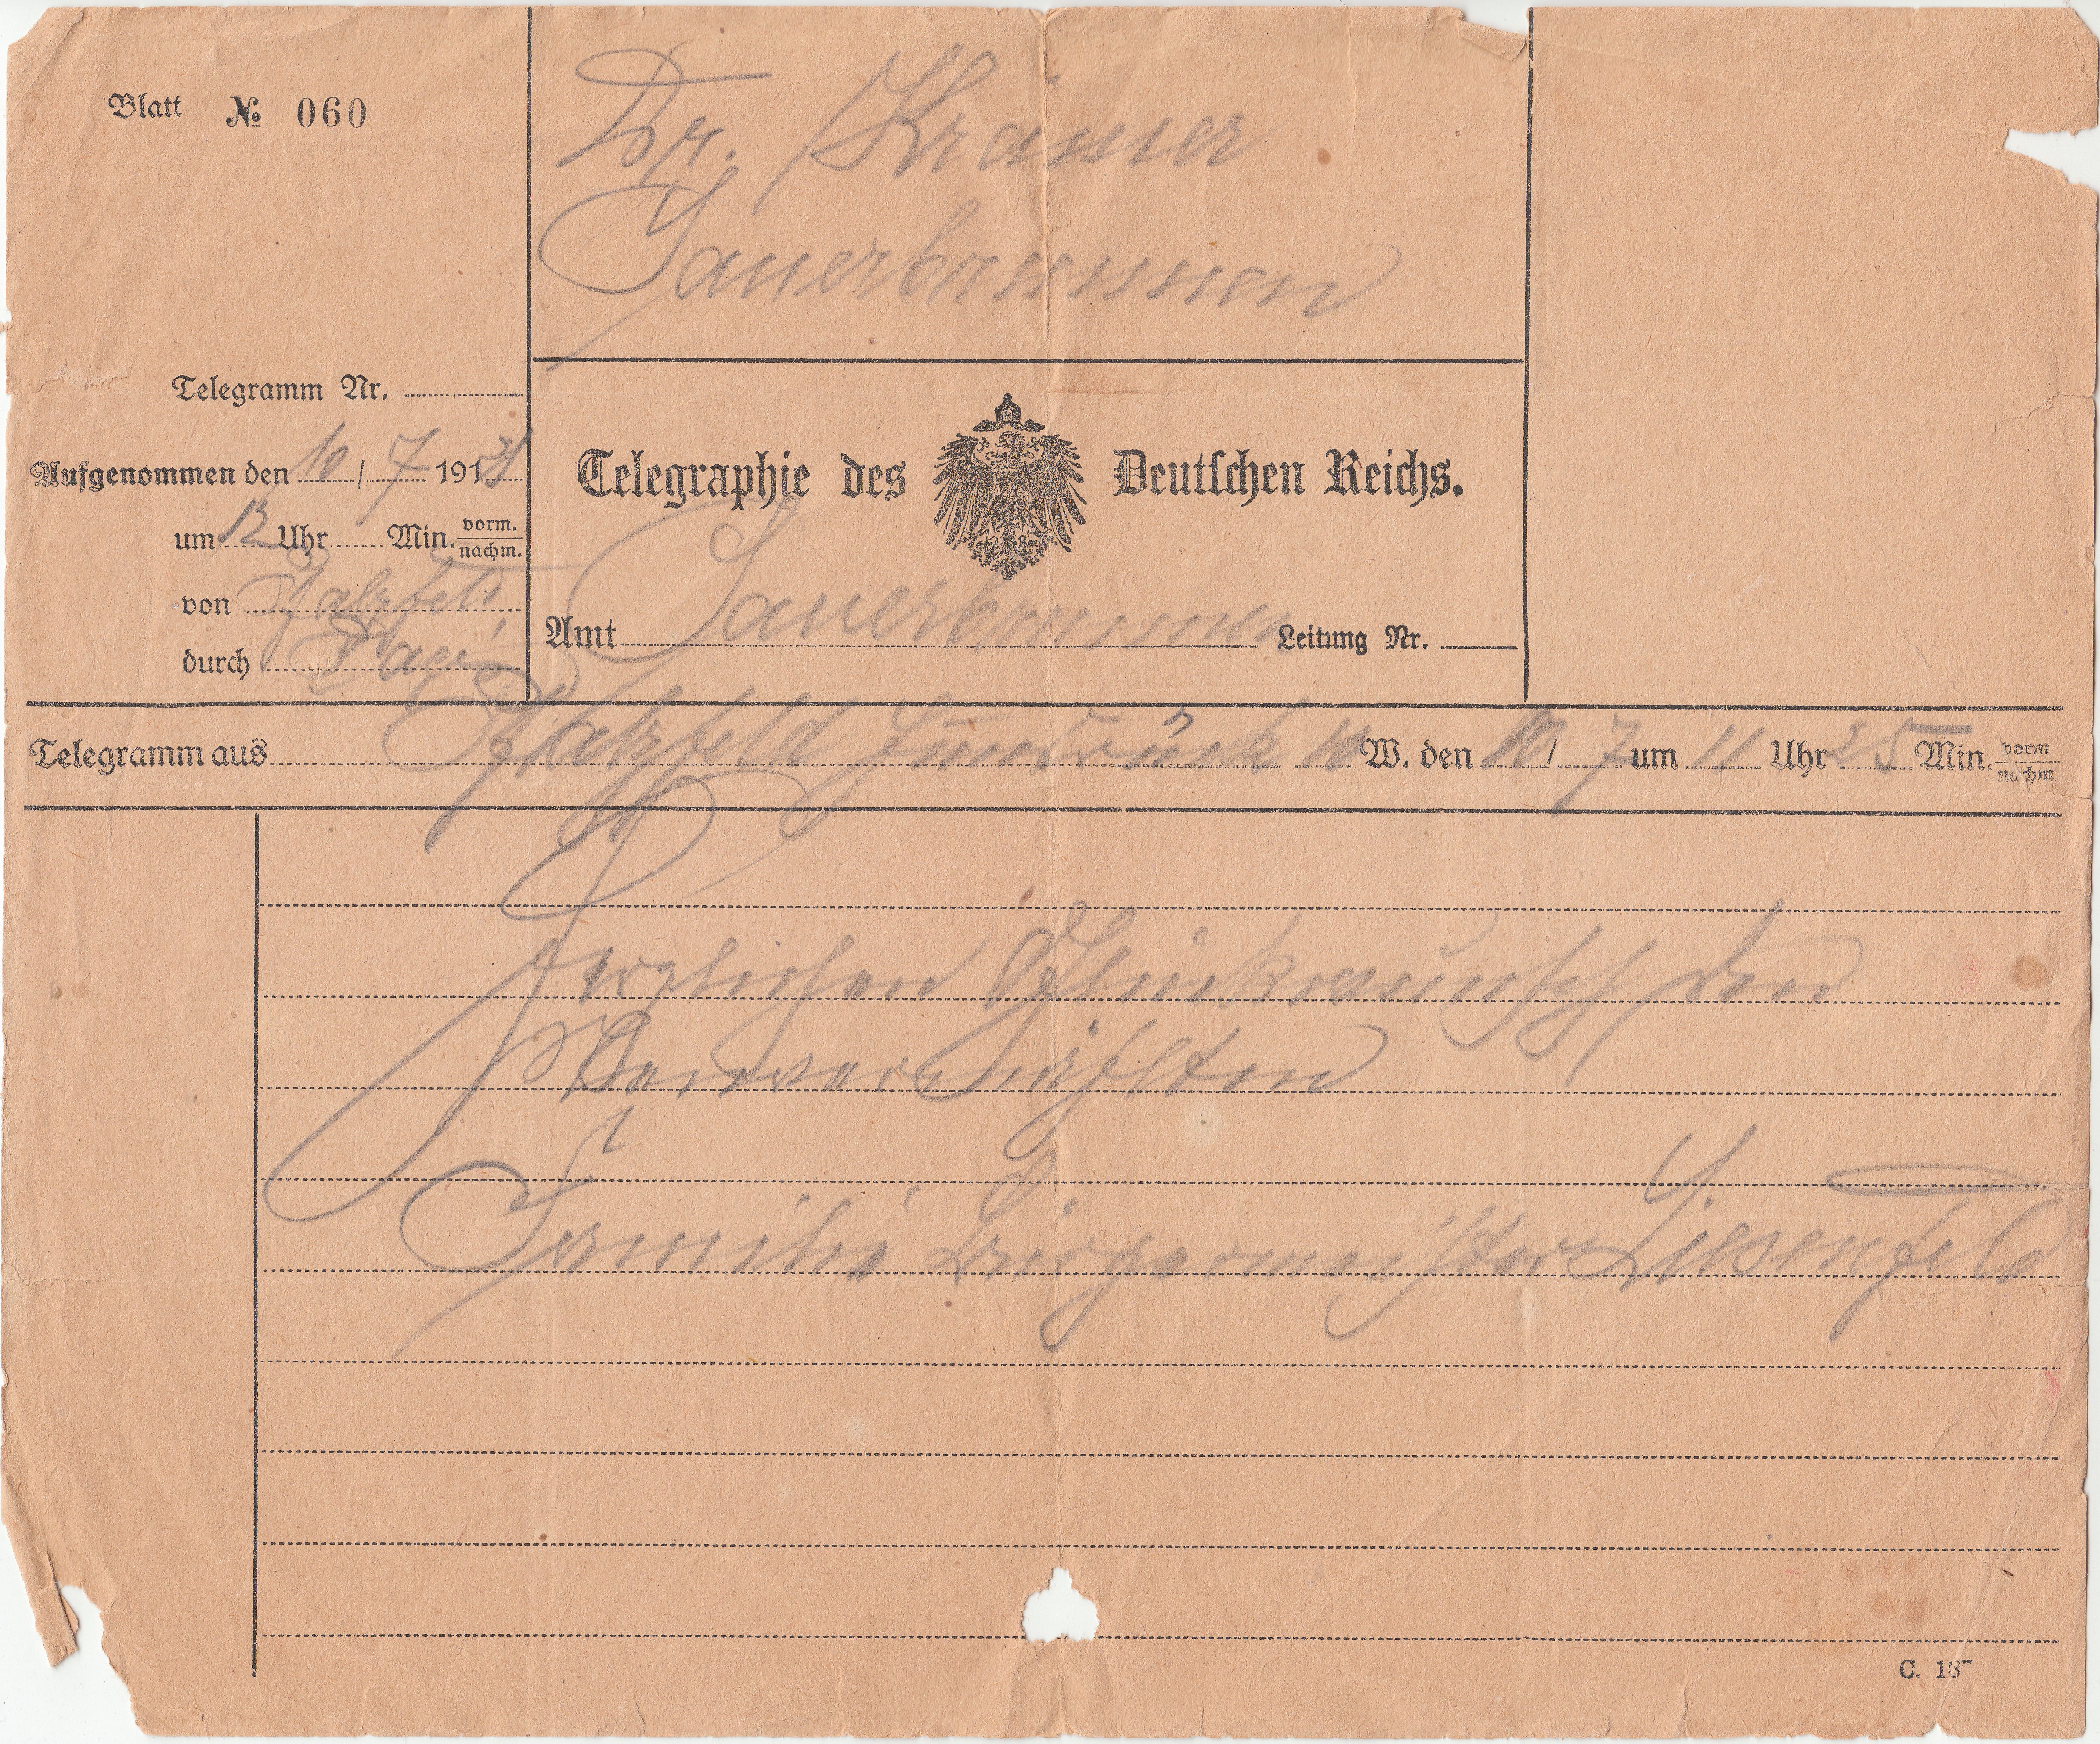 Blatt № 060
Dr. Krämer
Sauerbrunnen
Telegramm Nr.
Aufgenommen den 10 / 7 1921
um 12 Uhr Min. vorm. nachm.
von Pfalzfeld
durch
Telegraphie des Deutschen Reichs.
Amt Sauerbrunnen Leitung Nr.
Telegramm aus Pfalzfeld Hunsrück W. den 10 / 7 um 11 Uhr 25 Min. vorm nachm
Herzlichen Glückwunsch den
Neuvermählten
Familie Bürgermeister Liesenfeld
C. 187